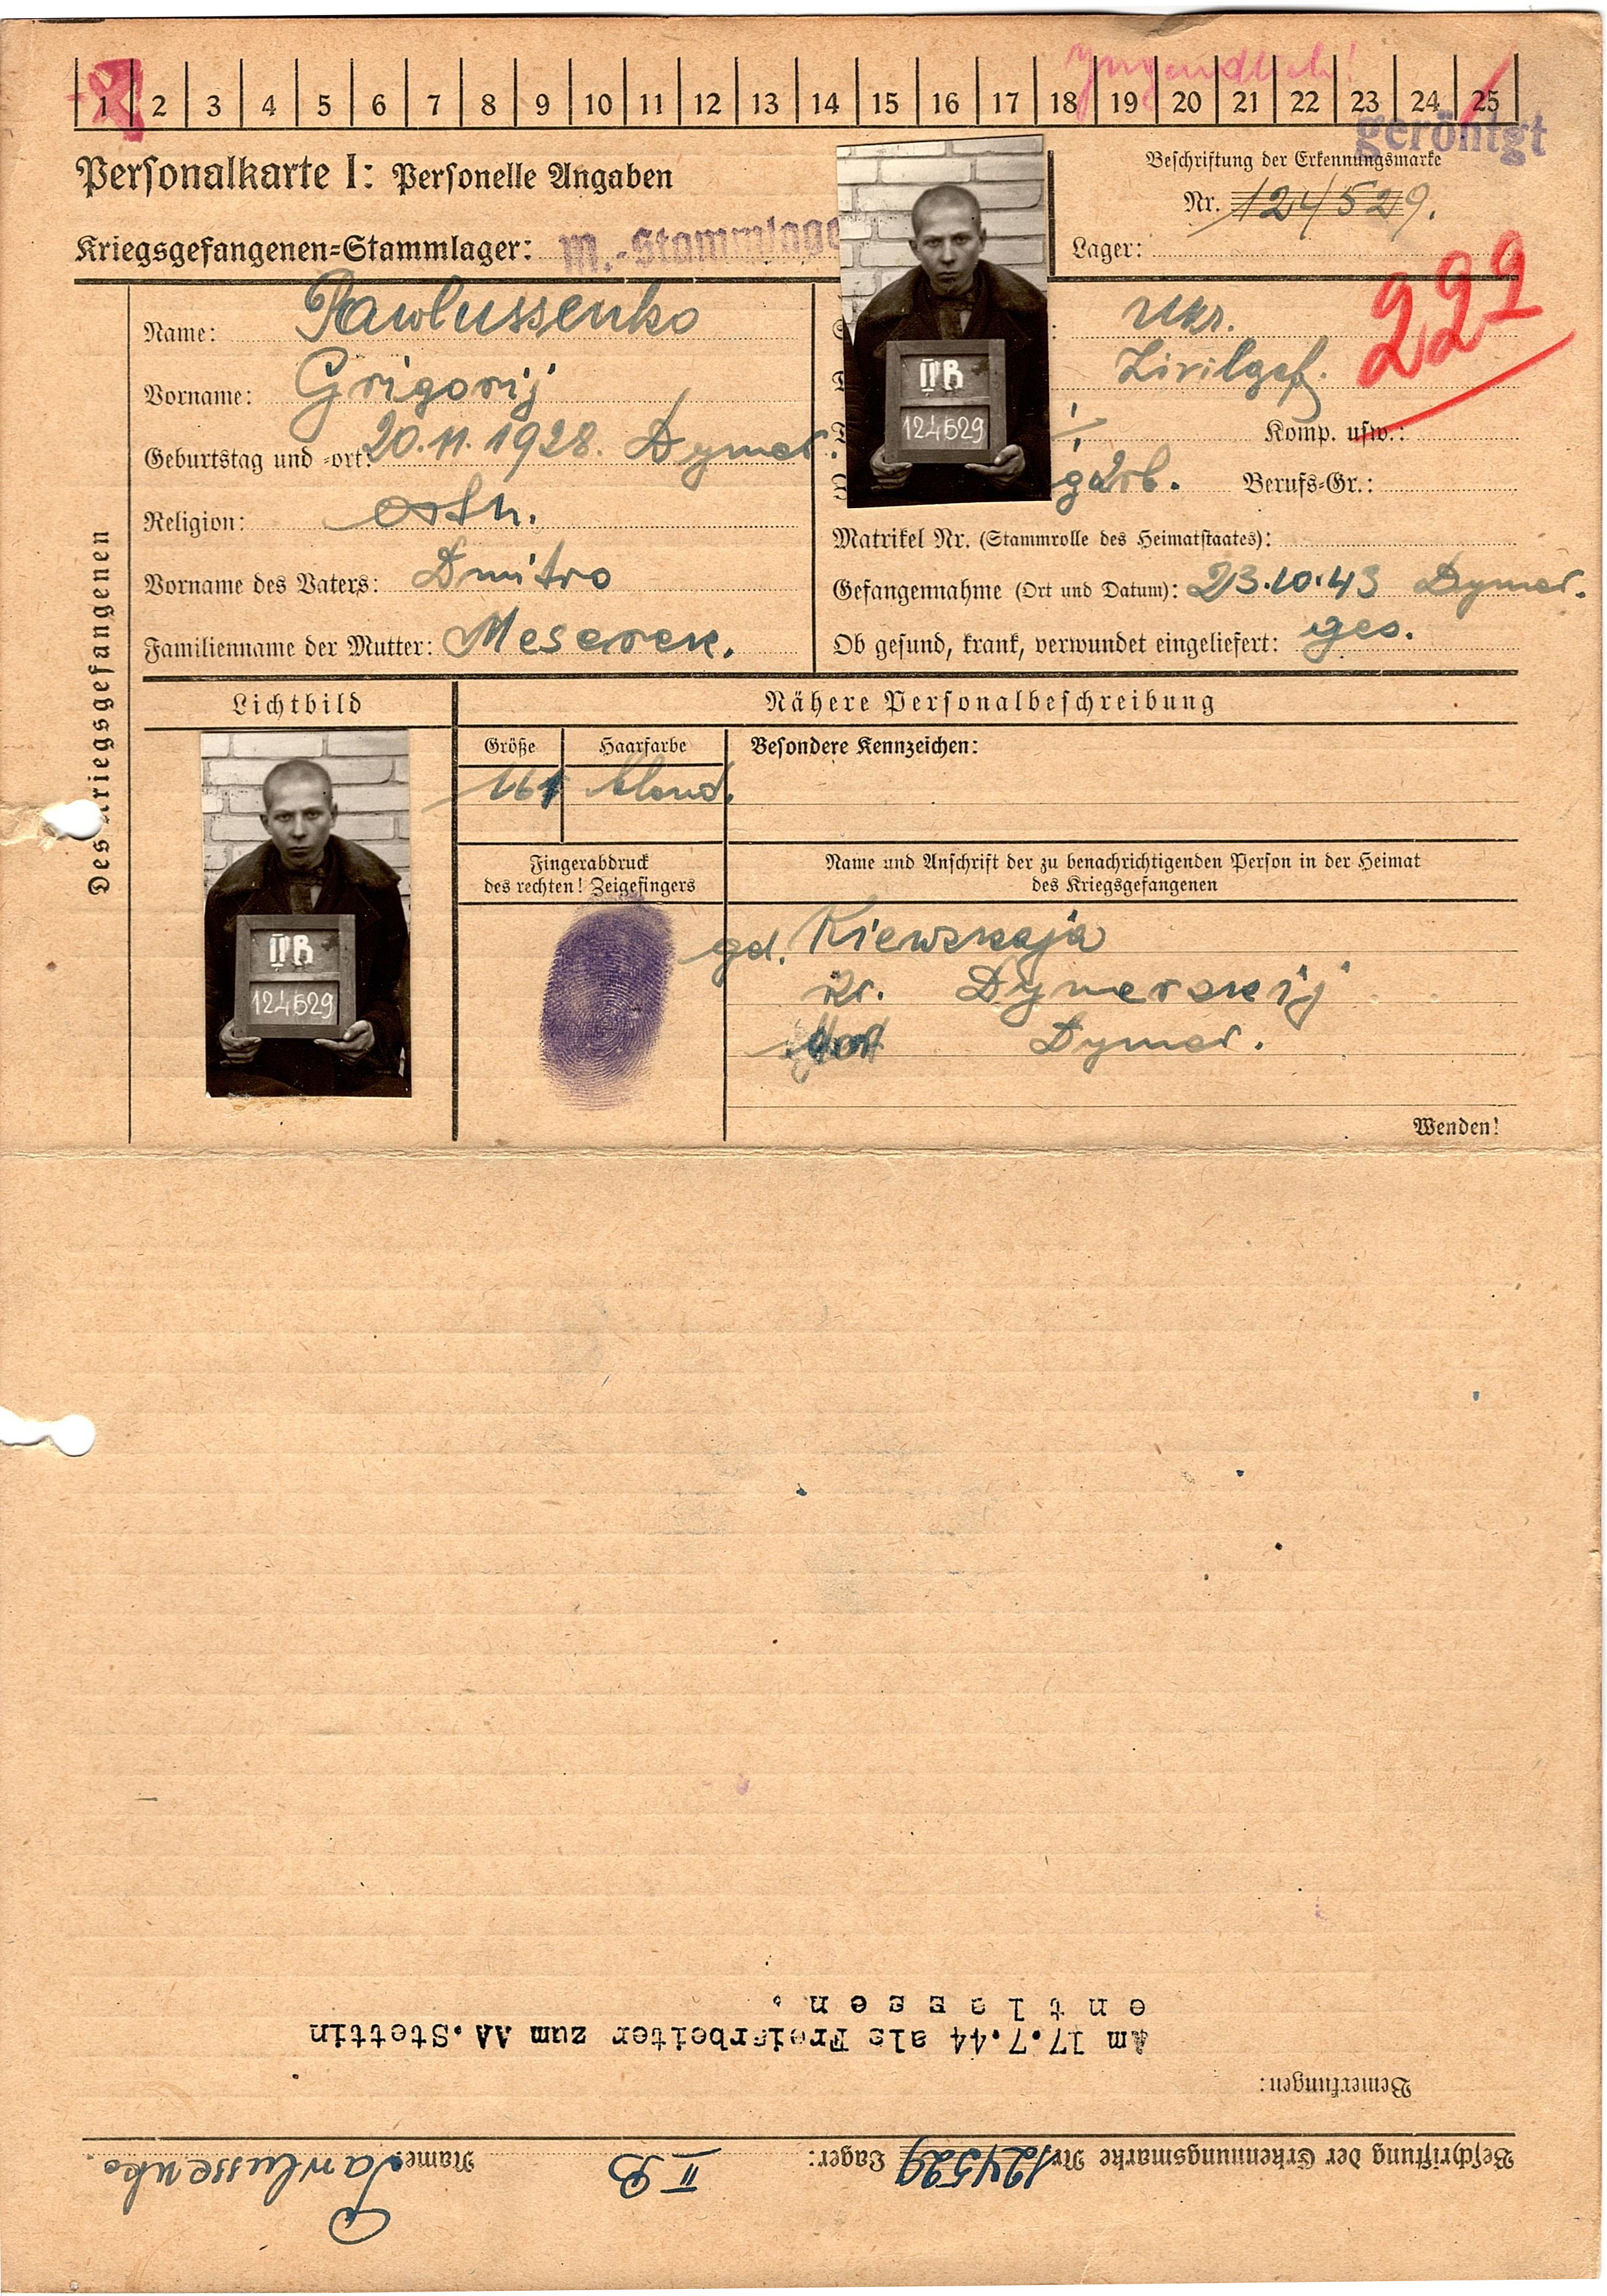 Jugendlich!
1 2 3 4 5 6 7 8 9 10 11 12 13 14 15 16 17 18 19 20 21 22 23 24 25
geröntgt
Personalkarte I: Personelle Angaben
Beschriftung der Erkennungsmarke
Nr. 124529.
Kriegsgefangenen=Stammlager: M.-Stammlage
Lager:
Des Kriegsgefangenen
Name: Pawlussenko
Vorname: Grigorij
Geburtstag und =ort: 20.11.1928. Dymer.
Religion: orth.
Vorname des Vaters: Dmitro
Familienname der Mutter: Meserek.
Ukr.
222
Zivilgef.
Komp. usw.:
Berufs=Gr.:
Matrikel Nr. (Stammrolle des Heimatstaates):
Gefangennahme (Ort und Datum): 23.10.43 Dymer.
Ob gesund, krank, verwundet eingeliefert: ges.
II B
124529
Lichtbild
Nähere Personalbeschreibung
Größe
Haarfarbe
Besondere Kennzeichen:
161
blond.
II B
124529
Fingerabdruck
des rechten! Zeigefingers
Name und Anschrift der zu benachrichtigenden Person in der Heimat
des Kriegsgefangenen
Kiewskaja
Dymerskij
Dymer.
Wenden!
Beschriftung der Erkennungsmarke Nr. 124529 Lager: II B Name: Pawlussenko.
Bemerkungen:
Am 17.7.44 als Freiarbeiter zum AA. Stettin
entlassen.